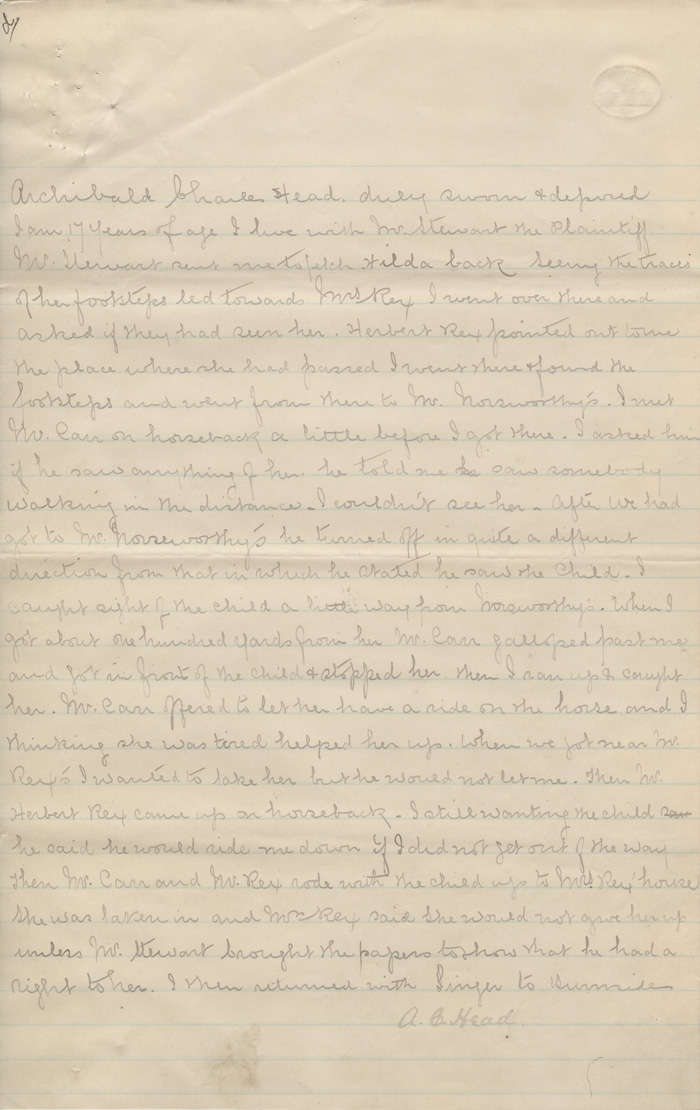 2/
Archibald Charles Head. duly sworn & deposed
I am 17 Years of age I live with Mr Stewart the Plaintiff
Mr. Stewart sent me to fetch Hilda back Seeing the traces
of her footsteps led towards Mrs Rex I went over there and
asked if they had seen her. Herbert Rex pointed out to me
the place where she had passed I went there & found the
footsteps and went from there to Mr. Norsworthy's. I met
Mr. Carr on horseback a little before I got there. I asked him
if he saw anything of her. he told me he saw somebody
walking in the distance. I couldn't see her. After we had
got to Mr. Norseworthy's he turned off in quite a different
direction from that in which he stated he saw the Child. I
caught sight of the child a little way from Norsworthy's. When I
got about one hundred yards from her Mr. Carr galloped past me
and got in front of the child & stopped her. then I ran up & caught
her. Mr. Carr offered to let her have a ride on the horse and I
thinking she was tired helped her up. When we got near Mr.
Rex's I wanted to take her but he would not let me. Then Mr.
Herbert Rex came up on horseback. I still wanting the child saw
he said he would ride me down if I did not get out of the way
then Mr. Carr and Mr. Rex rode with the child up to Mrs Rex' house
She was taken in and Mrs Rex said she would not give her up
unless Mr. Stewart brought the papers to show that he had a
right to her. I then returned with Singer to Burnside
A. C. Head.